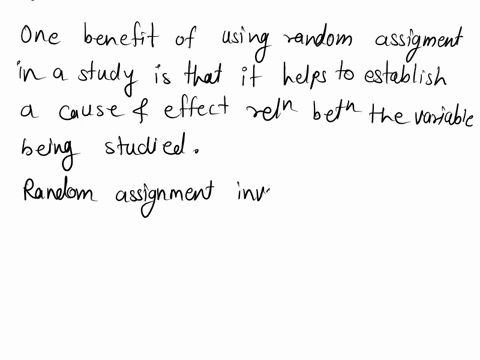 One benefit of using random assigment
in a study is that it helps to establish
a cause & effect relⁿ betⁿ the variable
being studied.
Random assignment inv